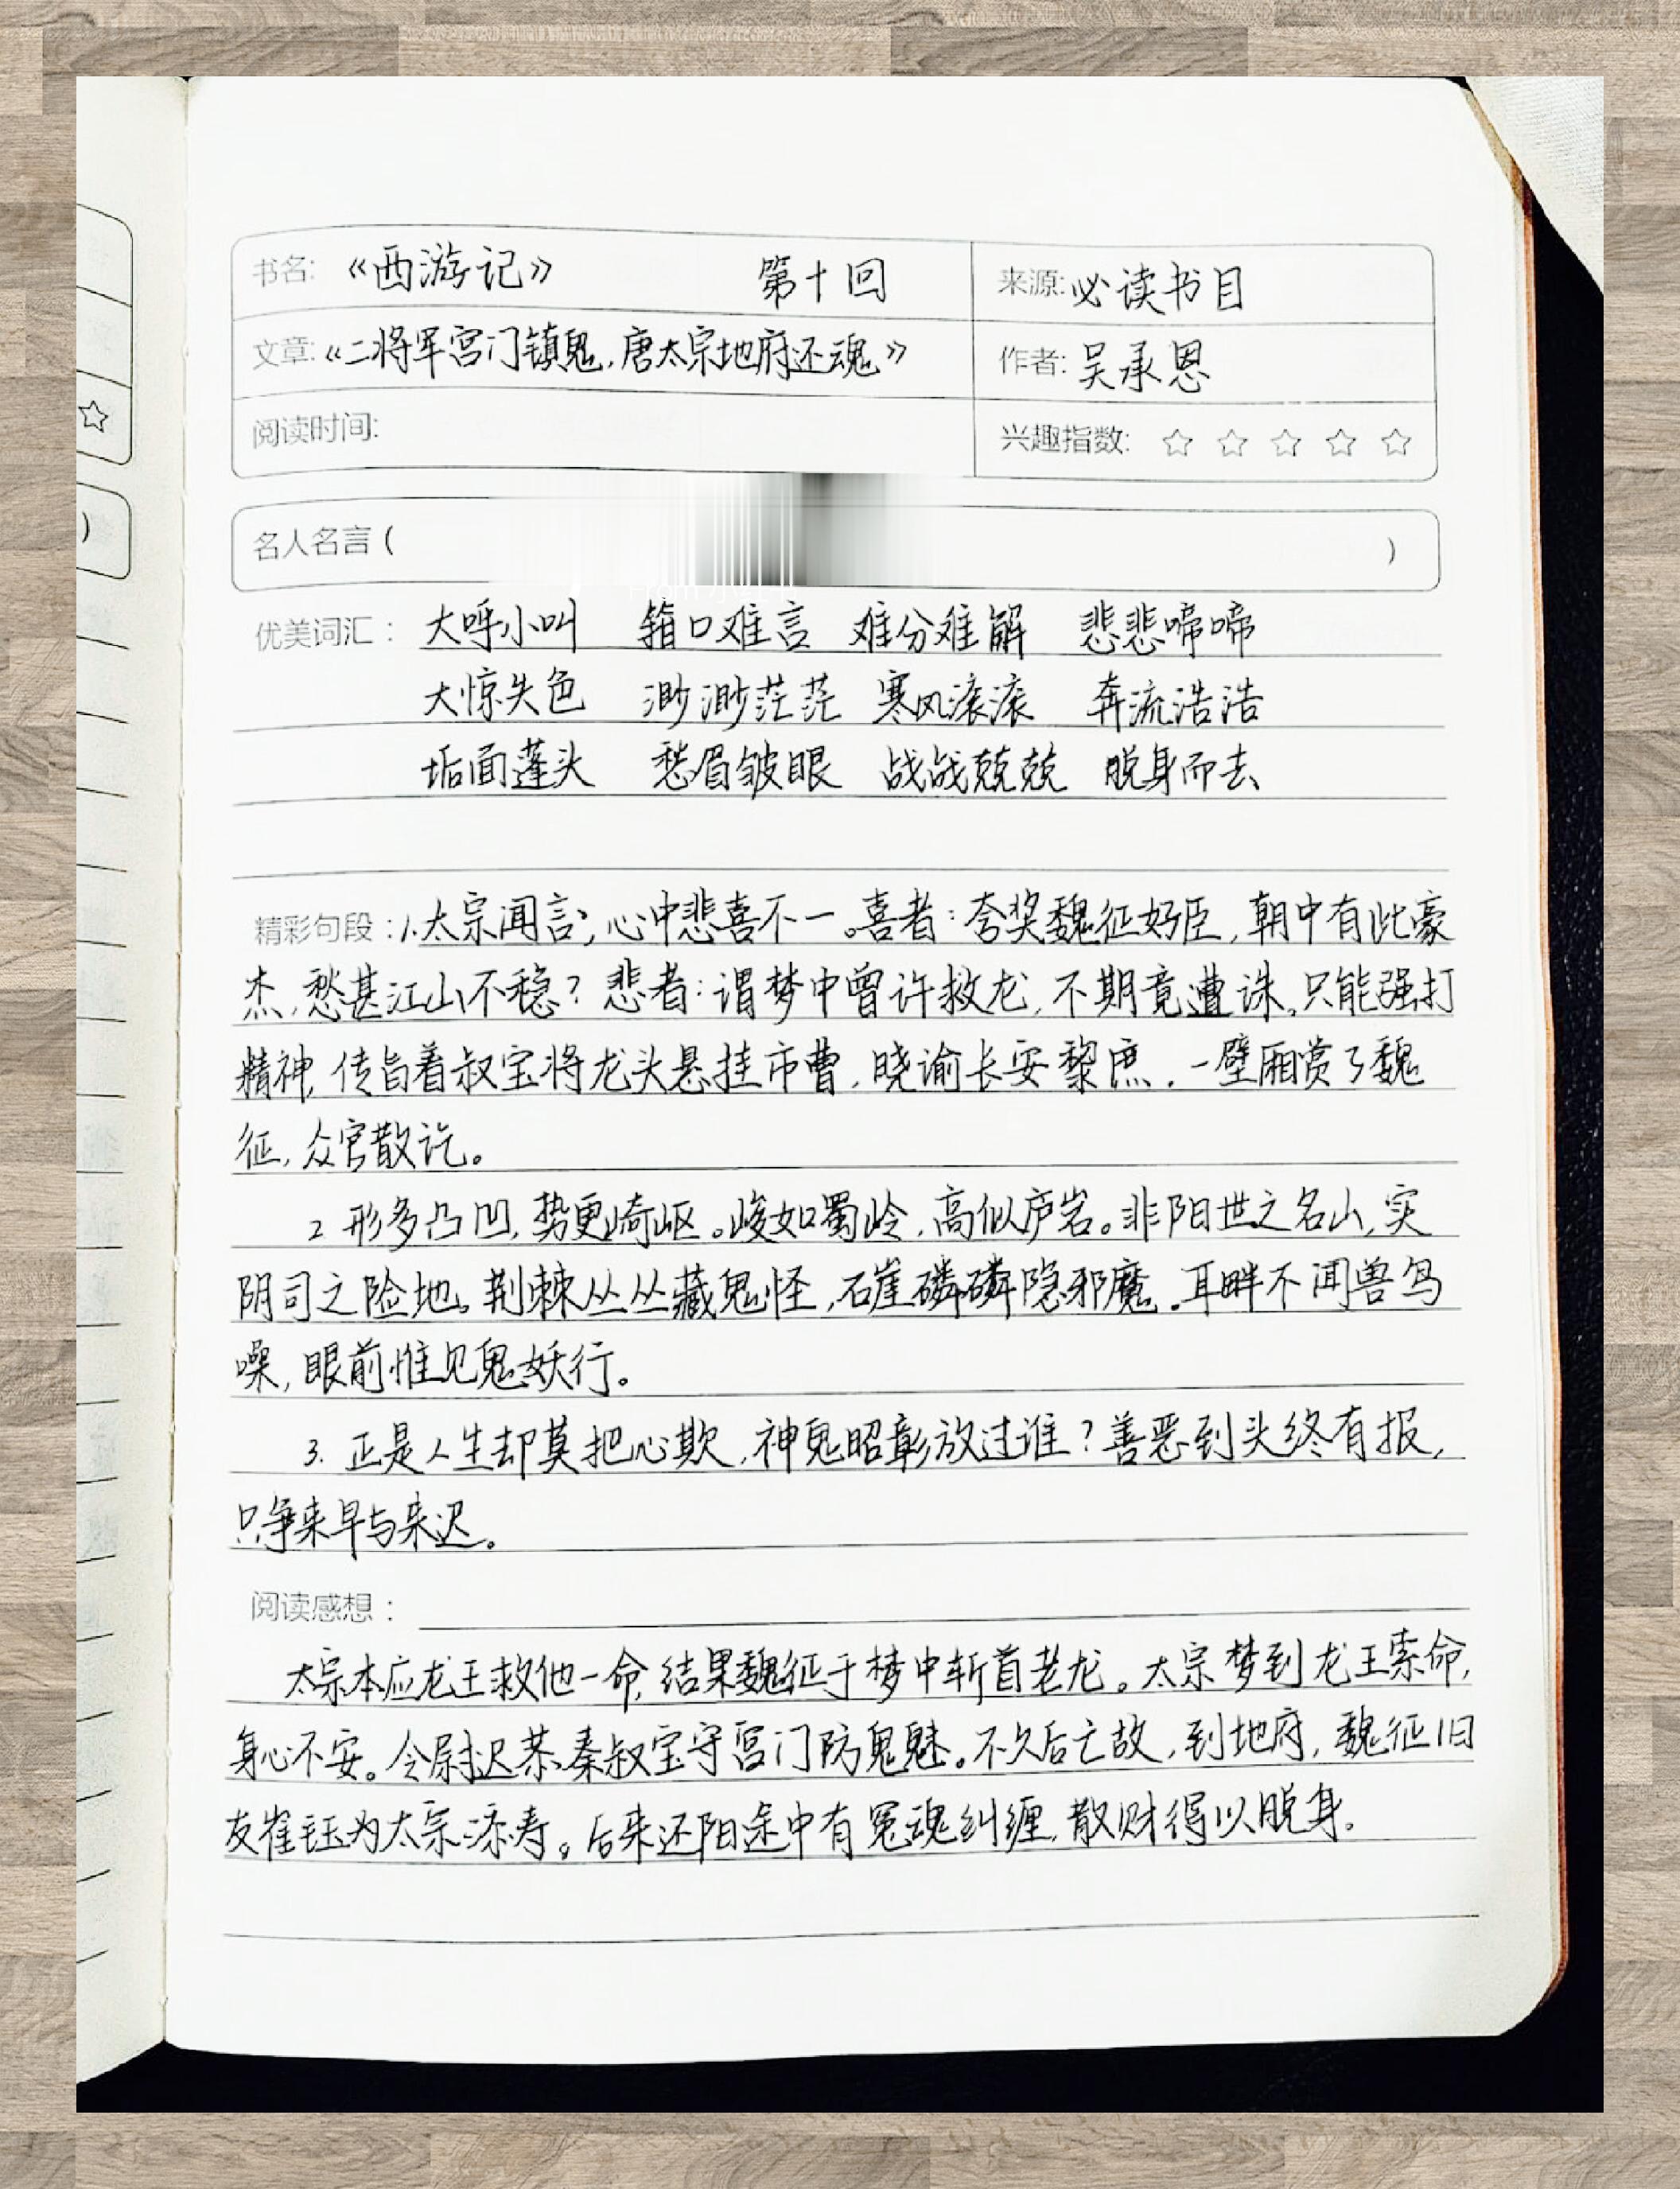 书名: 《西游记》 第十回 来源: 必读书目
文章: 《二将军宫门镇鬼,唐太宗地府还魂》 作者: 吴承恩
阅读时间: 兴趣指数: ☆ ☆ ☆ ☆ ☆
名人名言 ( )
优美词汇: 大呼小叫 箝口难言 难分难解 悲悲啼啼
大惊失色 渺渺茫茫 寒风滚滚 奔流浩浩
垢面蓬头 愁眉皱眼 战战兢兢 脱身而去
精彩句段: 1.太宗闻言,心中悲喜不一。喜者:夸奖魏征好臣,朝中有此豪
杰,愁甚江山不稳?悲者:谓梦中曾许救龙,不期竟遭诛。只能强打
精神,传旨着叔宝将龙头悬挂市曹,晓谕长安黎庶,一壁厢赏了魏
征,众官散讫。
2 形多凸凹,势更崎岖。峻如蜀岭,高似庐岩。非阳世之名山,实
阴司之险地。荆棘丛丛藏鬼怪,石崖磷磷隐邪魔。耳畔不闻兽鸟
噪,眼前惟见鬼妖行。
3. 正是人生却莫把心欺,神鬼昭彰放过谁?善恶到头终有报,
只争来早与来迟。
阅读感想:
太宗本应龙王救他一命,结果魏征于梦中斩首老龙。太宗梦到龙王索命,
身心不安。令尉迟恭、秦叔宝守宫门防鬼魅。不久后亡故,到地府,魏征旧
友崔钰为太宗添寿。后来还阳途中有冤魂纠缠,散财得以脱身。